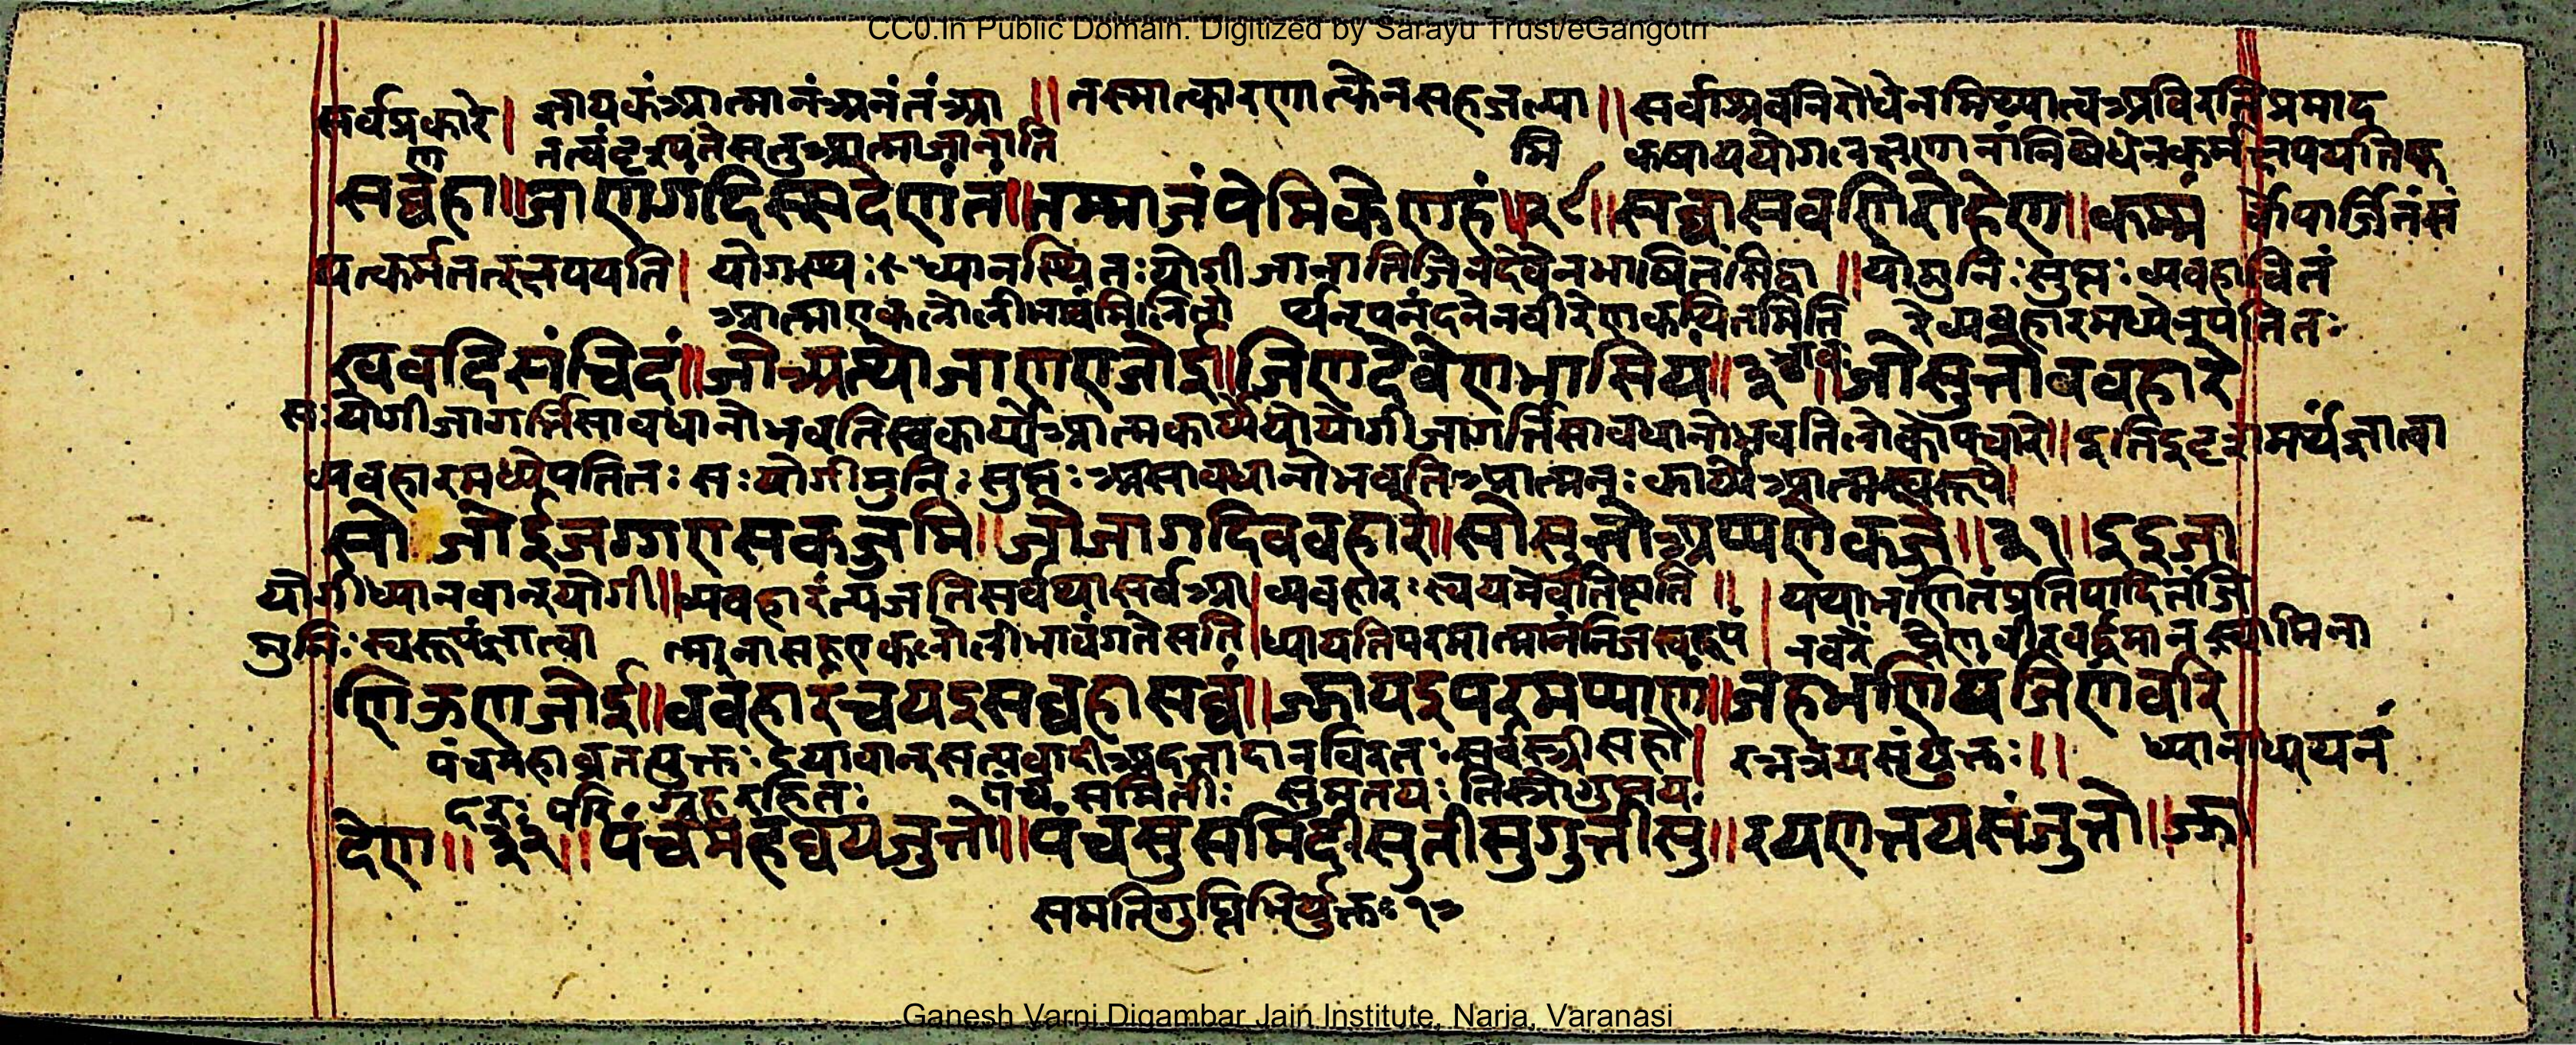 CC0.In Public Domain. Digitized by Sarayu Trust/eGangotri
सर्वप्रकारे | ज्ञायकंआत्मानंअनंतंआ || तस्मात्कारणात्केनसहजल्पा || सर्वाश्रवनिरोधेनमिथ्यात्वअविरतिप्रमाद
नत्वंदृश्यतेसतुआत्माजानाति मि कषाययोग निषेधेनकर्म
सव्वहा || जाणगंदिस्सदेणंतं || तम्माजंपेमिकेणहं || २९ || सव्वासवणिरोहेण || कम्मं र्वोपार्जितंसं
यत्कर्मतत्क्षपयति | योगस्थः ध्यानस्थितःयोगीजानातिजिनदेवेनभाषितं || योमुनिःसुप्तःव्यवहा चितं
आत्माएकलोलीभाव कथितमिति व्यवहारमध्येनुपतितः
खवदिसंचिदं || जोअत्थोजाणएजोई || जिणदेवेणभासियं || ३० || जोसुत्तोववहारे
सःयोगीजागर्त्तिसावधानोभवतिस्वकार्येआत्मकार्येयोयोगीजागर्त्तिसावधानोभवतिलोकोपचारे || इति मर्थंज्ञात्वा
व्यवहारमध्येपतितः सःयोगीमुनिः सुप्तः असावधानोभवतिआत्मनः कार्येआत्मस्वरूपे |
सो जोईजग्गएसकज्जमि || जोजागदिववहारे || सोसुत्तोअप्पणेकज्जे || ३१ || इइजा
योगीध्यानवान्योगी || व्यवहारंत्यजतिसर्वथासर्वआ | व्यवहारःस्वयमेवतिष्ठति || | यथाभणितंप्रतिपादितंजि
मुनिःस्वरूपंज्ञात्वा त्मनासहएकलोलीभावंगतेसति | ध्यायतिपरमात्मानंनिजस्वरूपं | नवरें वीरवर्द्धमानस्वामिना
णिऊणजोई || ववहारंचयइसव्वहासव्वं || ज्झायइपरमप्पाणं || जहभणियंजिणवरिं
पंचमहाव्रतयुक्तः दयावान्सत्यवादीअदत्तादानविरतःसर्वस्त्रीसहो | रत्नत्रयसंयुक्तः || ध्यानाध्ययनं
दरः परिग्रहरहितः पंच समितीः सुमतयः तिस्रोगुप्तयः
देण || ३२ || पंचमहव्वयजुत्तो || पंचसुसमिदीसुतीसुगुत्तीसु || रयणत्तयसंजुत्तो || ज्झा
समतिगुप्तिभिर्युक्तः १७
Ganesh Varni Digambar Jain Institute, Naria, Varanasi